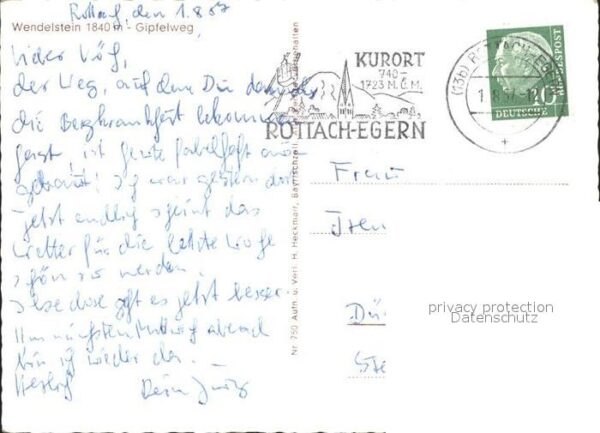 Rottach, den 1.8.57
Wendelstein 1840 m - Gipfelweg
der Weg, auf dem Du damals
die Bergkrankheit bekommen
ist heute fabelhaft aus-
gebaut! Ich war gestern dort
jetzt endlich scheint das
Wetter für die letzte Woche
schön zu werden.
geht es jetzt besser.
Am nächsten Mittwoch abend
bin ich wieder da.
Herzlich Dein
Nr. 750 Aufn. u. Verl. H. Heckmair, Bayrischzell
KURORT
740-
1723 M.Ü.M.
ROTTACH-EGERN
(13b) ROTTACH-EGERN
1.8.57
10
DEUTSCHE
BUNDESPOST
Frau
Iren
Dü
Ste
privacy protection
Datenschutz